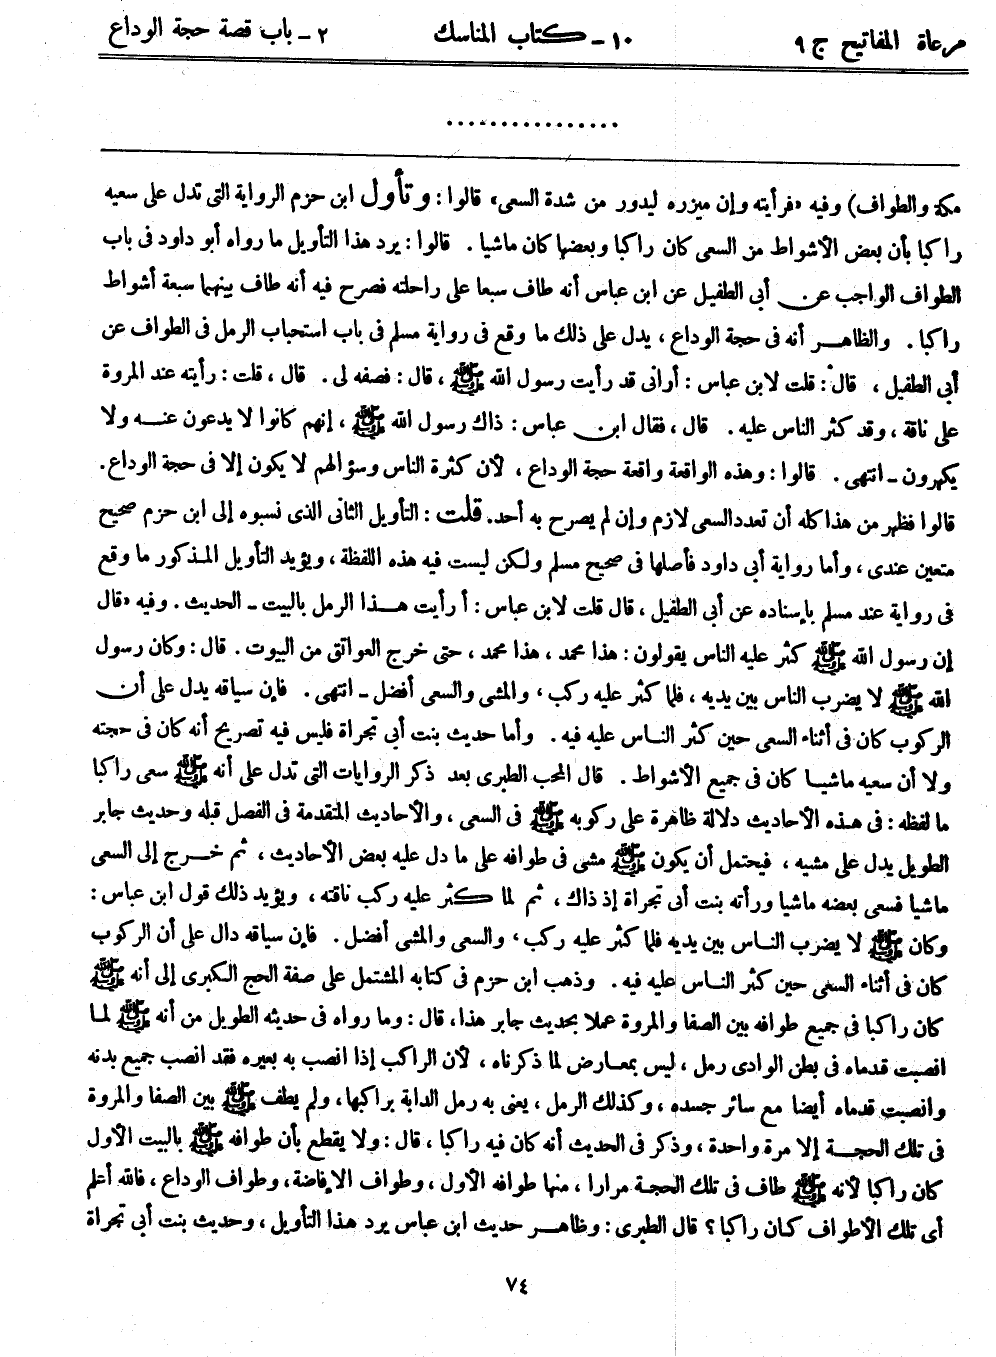 مرعاة المفاتيح ج ٩
١٠ - كتاب المناسك
٢ - باب قصة حجة الوداع
................
مكة والطواف) وفيه «فرأيته وإن ميزره ليدور من شدة السعى» قالوا: وتأول ابن حزم الرواية التى تدل على سعيه
راكبا بأن بعض الأشواط من السعى كان راكبا وبعضها كان ماشيا. قالوا: يرد هذا التأويل ما رواه أبو داود فى باب
الطواف الواجب عن أبى الطفيل عن ابن عباس أنه طاف سبعا على راحلته فصرح فيه أنه طاف بينهما سبعة أشواط
راكبا. والظاهر أنه فى حجة الوداع، يدل على ذلك ما وقع فى رواية مسلم فى باب استحباب الرمل فى الطواف عن
أبى الطفيل، قال: قلت لابن عباس: أرانى قد رأيت رسول الله ﷺ، قال: فصفه لى. قال، قلت: رأيته عند المروة
على ناقة، وقد كثر الناس عليه. قال، فقال ابن عباس: ذاك رسول الله ﷺ، إنهم كانوا لا يدعون عنه ولا
يكهرون - انتهى. قالوا: وهذه الواقعة واقعة حجة الوداع، لأن كثرة الناس وسؤالهم لا يكون إلا فى حجة الوداع.
قالوا فظهر من هذا كله أن تعدد السعى لازم وإن لم يصرح به أحد. قلت: التأويل الثانى الذى نسبوه إلى ابن حزم صحيح
متعين عندى، وأما رواية أبى داود فأصلها فى صحيح مسلم ولكن ليست فيه هذه اللفظة، ويؤيد التأويل المذكور ما وقع
فى رواية عند مسلم بإسناده عن أبى الطفيل، قال قلت لابن عباس: أرأيت هذا الرمل بالبيت - الحديث. وفيه «قال
إن رسول الله ﷺ كثر عليه الناس يقولون: هذا محمد، هذا محمد، حتى خرج العواتق من البيوت. قال: وكان رسول
الله ﷺ لا يضرب الناس بين يديه، فلما كثر عليه ركب، والمشى والسعى أفضل - انتهى. فإن سياقه يدل على أن
الركوب كان فى أثناء السعى حين كثر الناس عليه فيه. وأما حديث بنت أبى تجراة فليس فيه تصريح أنه كان فى حجته
ولا أن سعيه ماشيا كان فى جميع الأشواط. قال المحب الطبرى بعد ذكر الروايات التى تدل على أنه ﷺ سعى راكبا
ما لفظه: فى هذه الأحاديث دلالة ظاهرة على ركوبه ﷺ فى السعى، والأحاديث المتقدمة فى الفصل قبله وحديث جابر
الطويل يدل على مشيه، فيحتمل أن يكون ﷺ مشى فى طوافه على ما دل عليه بعض الأحاديث، ثم خرج إلى السعى
ماشيا فسعى بعضه ماشيا ورأته بنت أبى تجراة إذ ذاك، ثم لما كثر عليه ركب ناقته، ويؤيد ذلك قول ابن عباس:
وكان ﷺ لا يضرب الناس بين يديه فلما كثر عليه ركب، والسعى والمشى أفضل. فإن سياقه دال على أن الركوب
كان فى أثناء السعى حين كثر الناس عليه فيه. وذهب ابن حزم فى كتابه المشتمل على صفة الحج الكبرى إلى أنه ﷺ
كان راكبا فى جميع طوافه بين الصفا والمروة عملا بحديث جابر هذا، قال: وما رواه فى حديثه الطويل من أنه ﷺ لما
انصبت قدماه فى بطن الوادى رمل، ليس بمعارض لما ذكرناه، لأن الراكب إذا انصب به بعيره فقد انصب جميع بدنه
وانصبت قدماه أيضا مع سائر جسده، وكذلك الرمل، يعنى به رمل الدابة براكبها، ولم يطف ﷺ بين الصفا والمروة
فى تلك الحجة إلا مرة واحدة، وذكر فى الحديث أنه كان فيه راكبا، قال: ولا يقطع بأن طوافه ﷺ بالبيت الأول
كان راكبا لأنه ﷺ طاف فى تلك الحجة مرارا، منها طوافه الأول، وطواف الإفاضة، وطواف الوداع، فالله أعلم
أى تلك الأطواف كان راكبا؟ قال الطبرى: وظاهر حديث ابن عباس يرد هذا التأويل، وحديث بنت أبى تجراة
٧٤